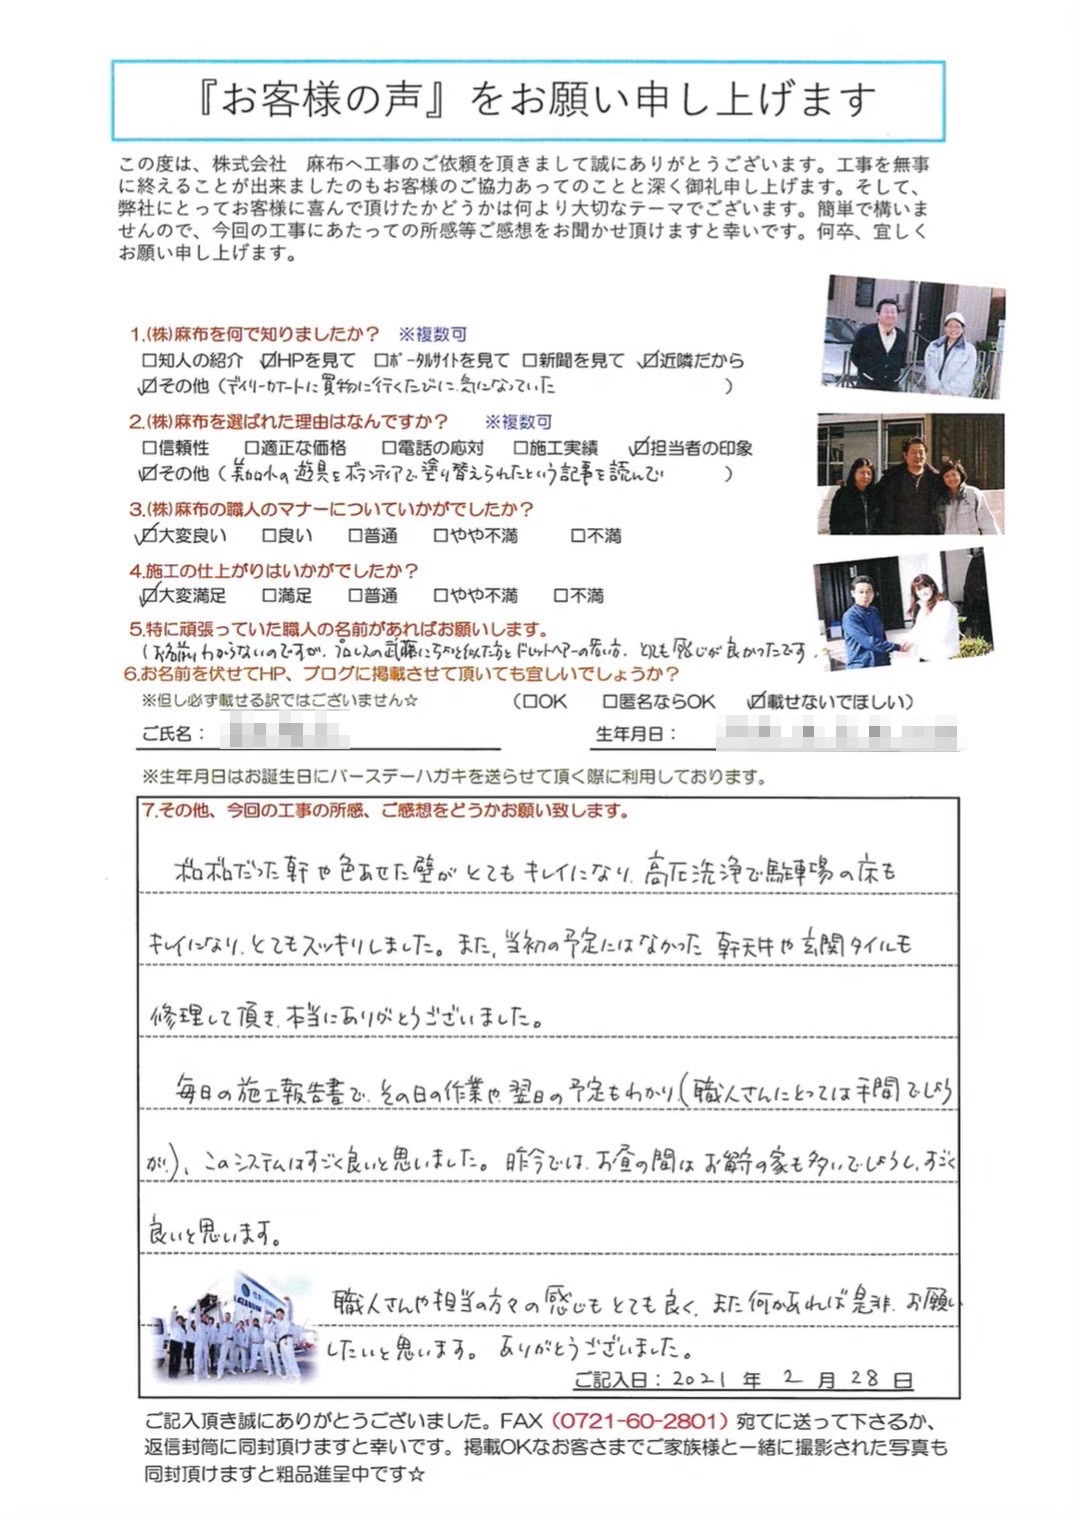 『お客様の声』をお願い申し上げます
この度は、株式会社　麻布へ工事のご依頼を頂きまして誠にありがとうございます。工事を無事
に終えることが出来ましたのもお客様のご協力あってのことと深く御礼申し上げます。そして、
弊社にとってお客様に喜んで頂けたかどうかは何より大切なテーマでございます。簡単で構いま
せんので、今回の工事にあたっての所感等ご感想をお聞かせ頂けますと幸いです。何卒、宜しく
お願い申し上げます。
1.(株)麻布を何で知りましたか？　※複数可
□知人の紹介　☑HPを見て　□ﾎﾟｰﾀﾙｻｲﾄを見て　□新聞を見て　☑近隣だから
☑その他（デイリーカナートに買物に行くたびに、気になっていた　）
2.(株)麻布を選ばれた理由はなんですか？　※複数可
□信頼性　□適正な価格　□電話の応対　□施工実績　☑担当者の印象
☑その他（美加の台の遊具をボランティアで塗り替えられたという記事を読んで　）
3.(株)麻布の職人のマナーについていかがでしたか？
☑大変良い　□良い　□普通　□やや不満　□不満
4.施工の仕上がりはいかがでしたか？
☑大変満足　□満足　□普通　□やや不満　□不満
5.特に頑張っていた職人の名前があればお願いします。
（お名前わからないのですが、プロレスの武藤にちょっと似た方とドレットヘアーの若い方、とても感じが良かったです。
6.お名前を伏せてHP、ブログに掲載させて頂いても宜しいでしょうか？
※但し必ず載せる訳ではございません☆　（□OK　□匿名ならOK　☑載せないでほしい）
ご氏名：　生年月日：
※生年月日はお誕生日にバースデーハガキを送らせて頂く際に利用しております。
7.その他、今回の工事の所感、ご感想をどうかお願い致します。
ボロボロだった軒や色あせた壁がとてもキレイになり、高圧洗浄で駐車場の床も
キレイになり、とてもスッキリしました。また、当初の予定にはなかった軒天井や玄関タイルも
修理して頂き、本当にありがとうございました。
毎日の施工報告書で、その日の作業や、翌日の予定もわかり、（職人さんにとっては手間でしょう
が）、このシステムはすごく良いと思いました。昨今では、お昼の間はお留守の家も多いでしょうし、すごく
良いと思います。
職人さんや担当の方々の感じもとても良く、また何かあれば是非、お願い
したいと思います。ありがとうございました。
ご記入日：2021 年 2 月 28 日
ご記入頂き誠にありがとうございました。FAX（0721-60-2801）宛てに送って下さるか、
返信封筒に同封頂けますと幸いです。掲載OKなお客さまでご家族様と一緒に撮影された写真も
同封頂けますと粗品進呈中です☆